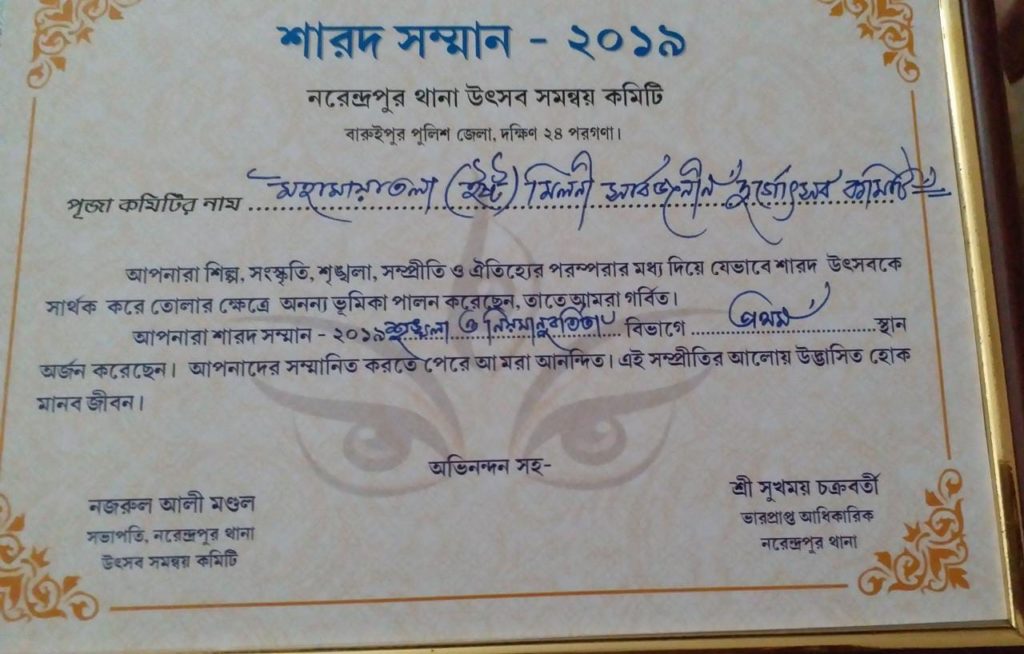 শারদ সম্মান - ২০১৯
নরেন্দ্রপুর থানা উৎসব সমন্বয় কমিটি
বারুইপুর পুলিশ জেলা, দক্ষিণ ২৪ পরগণা।
পূজা কমিটির নাম মহামায়াতলা (ইষ্ট) মিলনী সার্বজনীন দুর্গোৎসব কমিটি
আপনারা শিল্প, সংস্কৃতি, শৃঙ্খলা, সম্প্রীতি ও ঐতিহ্যের পরম্পরার মধ্য দিয়ে যেভাবে শারদ উৎসবকে
সার্থক করে তোলার ক্ষেত্রে অনন্য ভূমিকা পালন করেছেন, তাতে আমরা গর্বিত।
আপনারা শারদ সম্মান - ২০১৯ শৃঙ্খলা ও নিয়মানুবর্তিতা বিভাগে প্রথম স্থান
অর্জন করেছেন। আপনাদের সম্মানিত করতে পেরে আমরা আনন্দিত। এই সম্প্রীতির আলোয় উদ্ভাসিত হোক
মানব জীবন।
অভিনন্দন সহ-
নজরুল আলী মণ্ডল
সভাপতি, নরেন্দ্রপুর থানা
উৎসব সমন্বয় কমিটি
শ্রী সুখময় চক্রবর্তী
ভারপ্রাপ্ত আধিকারিক
নরেন্দ্রপুর থানা